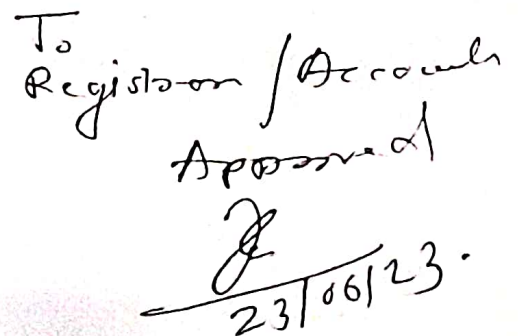 To
Registrar / Accounts
Approved
23/06/23.